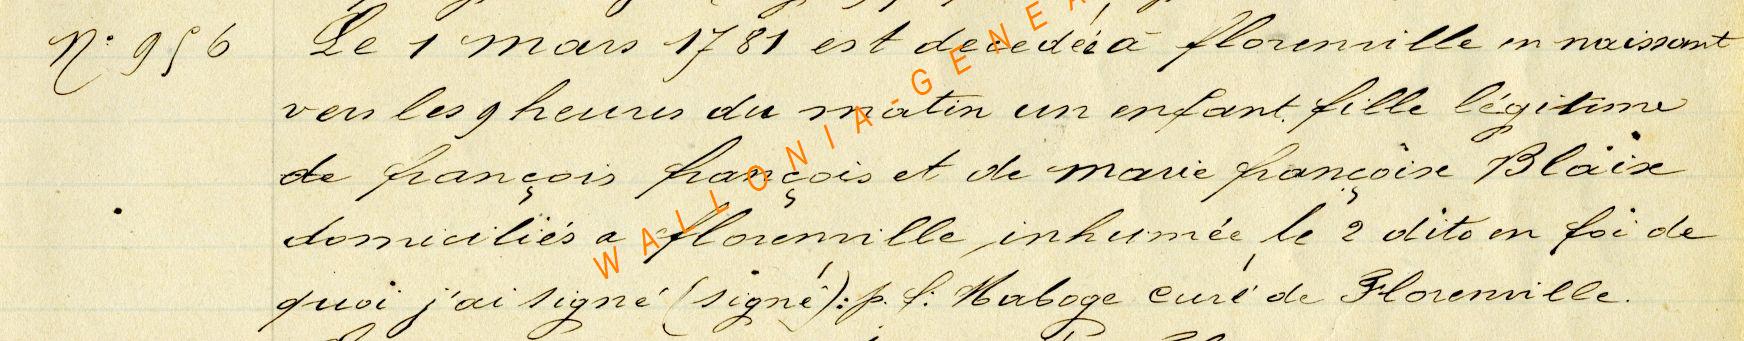 N° 956 Le 1 mars 1781 est decedée à florenville en naissant
vers les 9 heures du matin un enfant fille légitime
de françois françois et de marie françoise Blaise
domiciliés a florenville inhumée le 2 dito en foi de
quoi j'ai signé (signé): p. f. Maboge curé de Florenville.
WALLONIA-GENEA